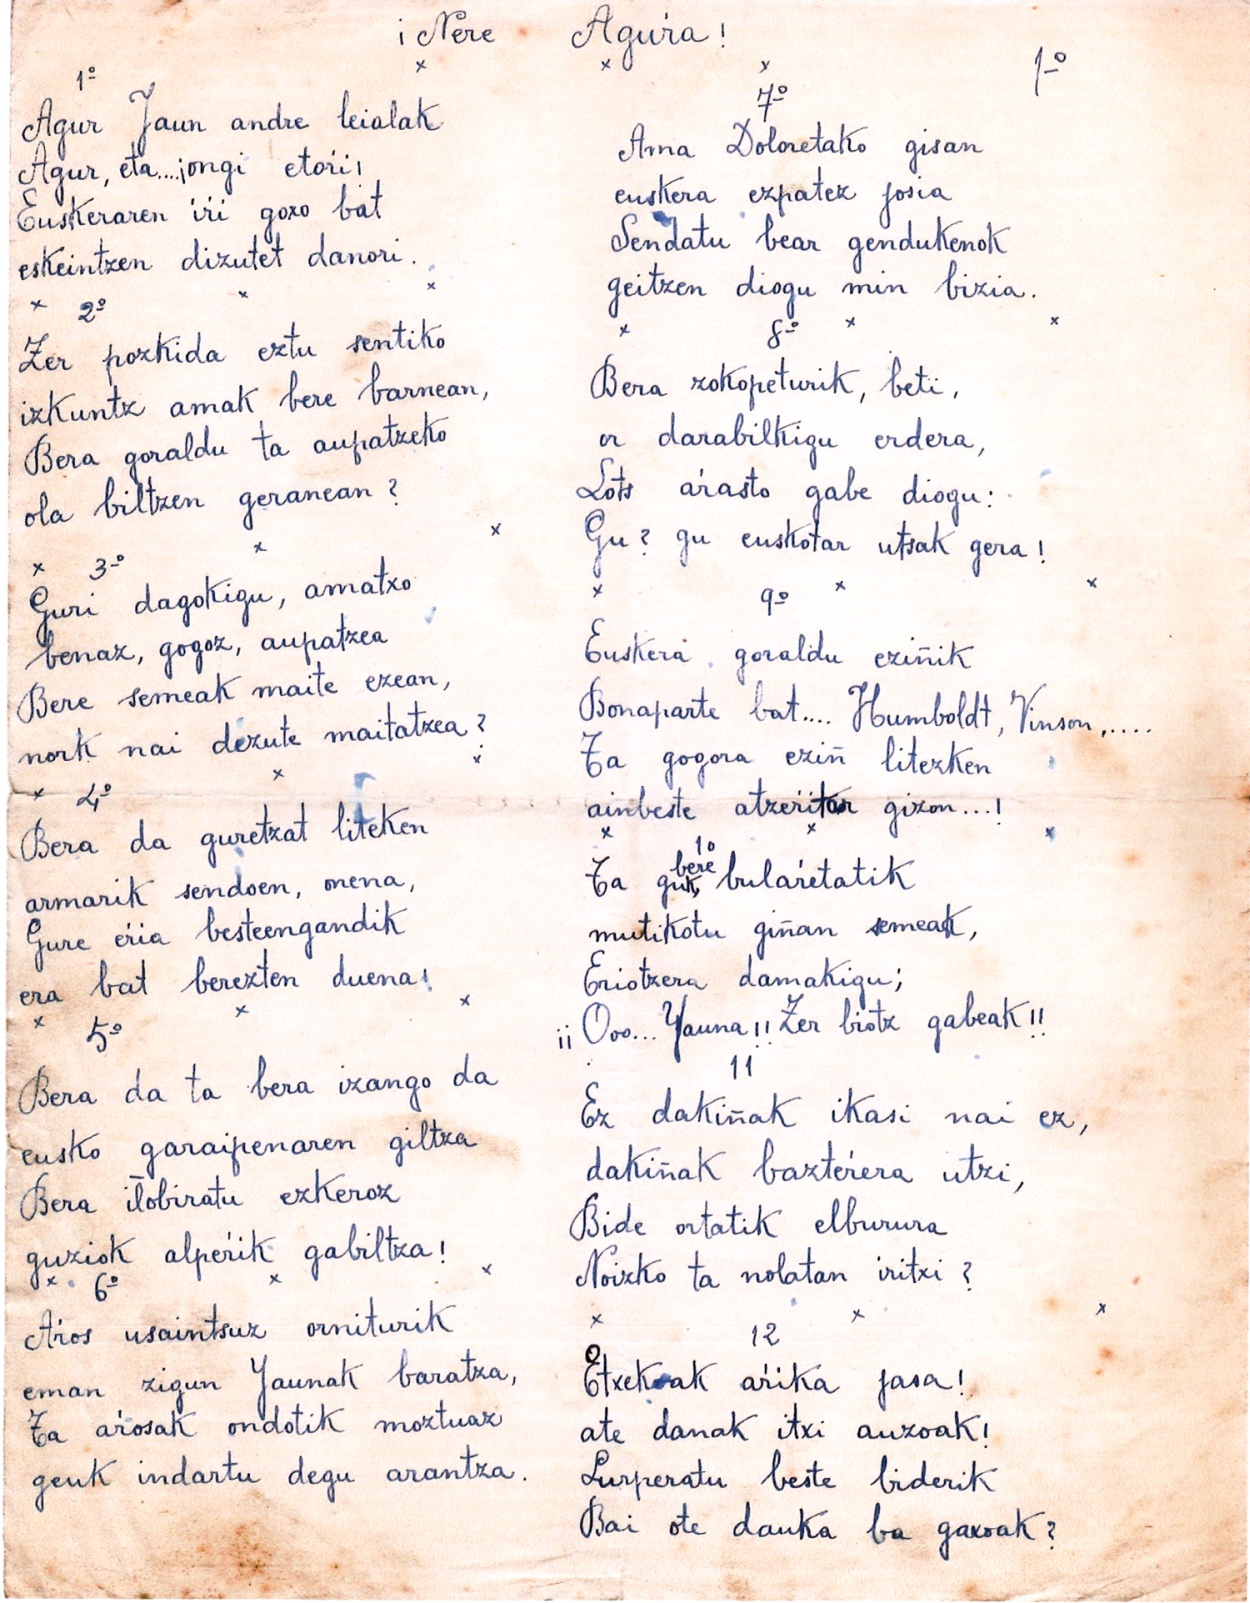 ¡ Nere Aguŕa !
1-º
1º
Agur Jaun andre leialak
Agur, eta....¡ongi etoŕi!
Euskeraren iŕi goxo bat
eskeintzen dizutet danori.
2º
Zer pozkida eztu sentiko
izkuntz amak bere barnean,
Bera goraldu ta aupatzeko
ola biltzen geranean ?
3-º
Guri dagokigu, amatxo
benaz, gogoz, aupatzea
Bere semeak maite ezean,
nork nai dezute maitatzea ?
4º
Bera da guretzat liteken
armarik sendoen, onena,
Gure eŕia besteengandik
era bat berezten duena!
5º
Bera da ta bera izango da
eusko garaipenaren giltza
Bera ilobiratu ezkeroz
guziok alpeŕik gabiltza !
6º
Aŕos usaintsuz orniturik
eman zigun Yaunak baratza,
Ta aŕosak ondotik moztuaz
geuk indartu degu arantza.
7º
Ama Doloretako gisan
euskera ezpatez josia
Sendatu bear gendukenok
geitzen diogu min bizia.
8º
Bera zokopeturik, beti,
or darabilkigu erdera,
Lots aŕasto gabe diogu:
Gu ? gu euskotar utsak gera !
9º
Euskera goraldu eziñik
Bonaparte bat.... Humboldt, Vinson,.....
Ta gogora eziñ litezken
ainbeste atzeŕitar gizon...!
10
Ta guk, bere bulaŕetatik
mutikotu giñan semeak,
Eriotzera damakigu;
¡¡ Ooo... Yauna !! Zer biotz gabeak !!
11
Ez dakiñak ikasi nai ez,
dakiñak bazteŕera utzi,
Bide ortatik elburura
Noizko ta nolatan iritxi ?
12
Etxekoak aŕika jasa !
ate danak itxi auzoak!
Lurperatu beste biderik
Bai ote dauka ba gaxoak ?